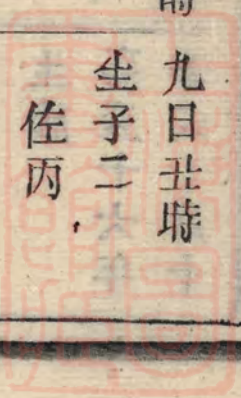 九日丑時
生子二
佐丙